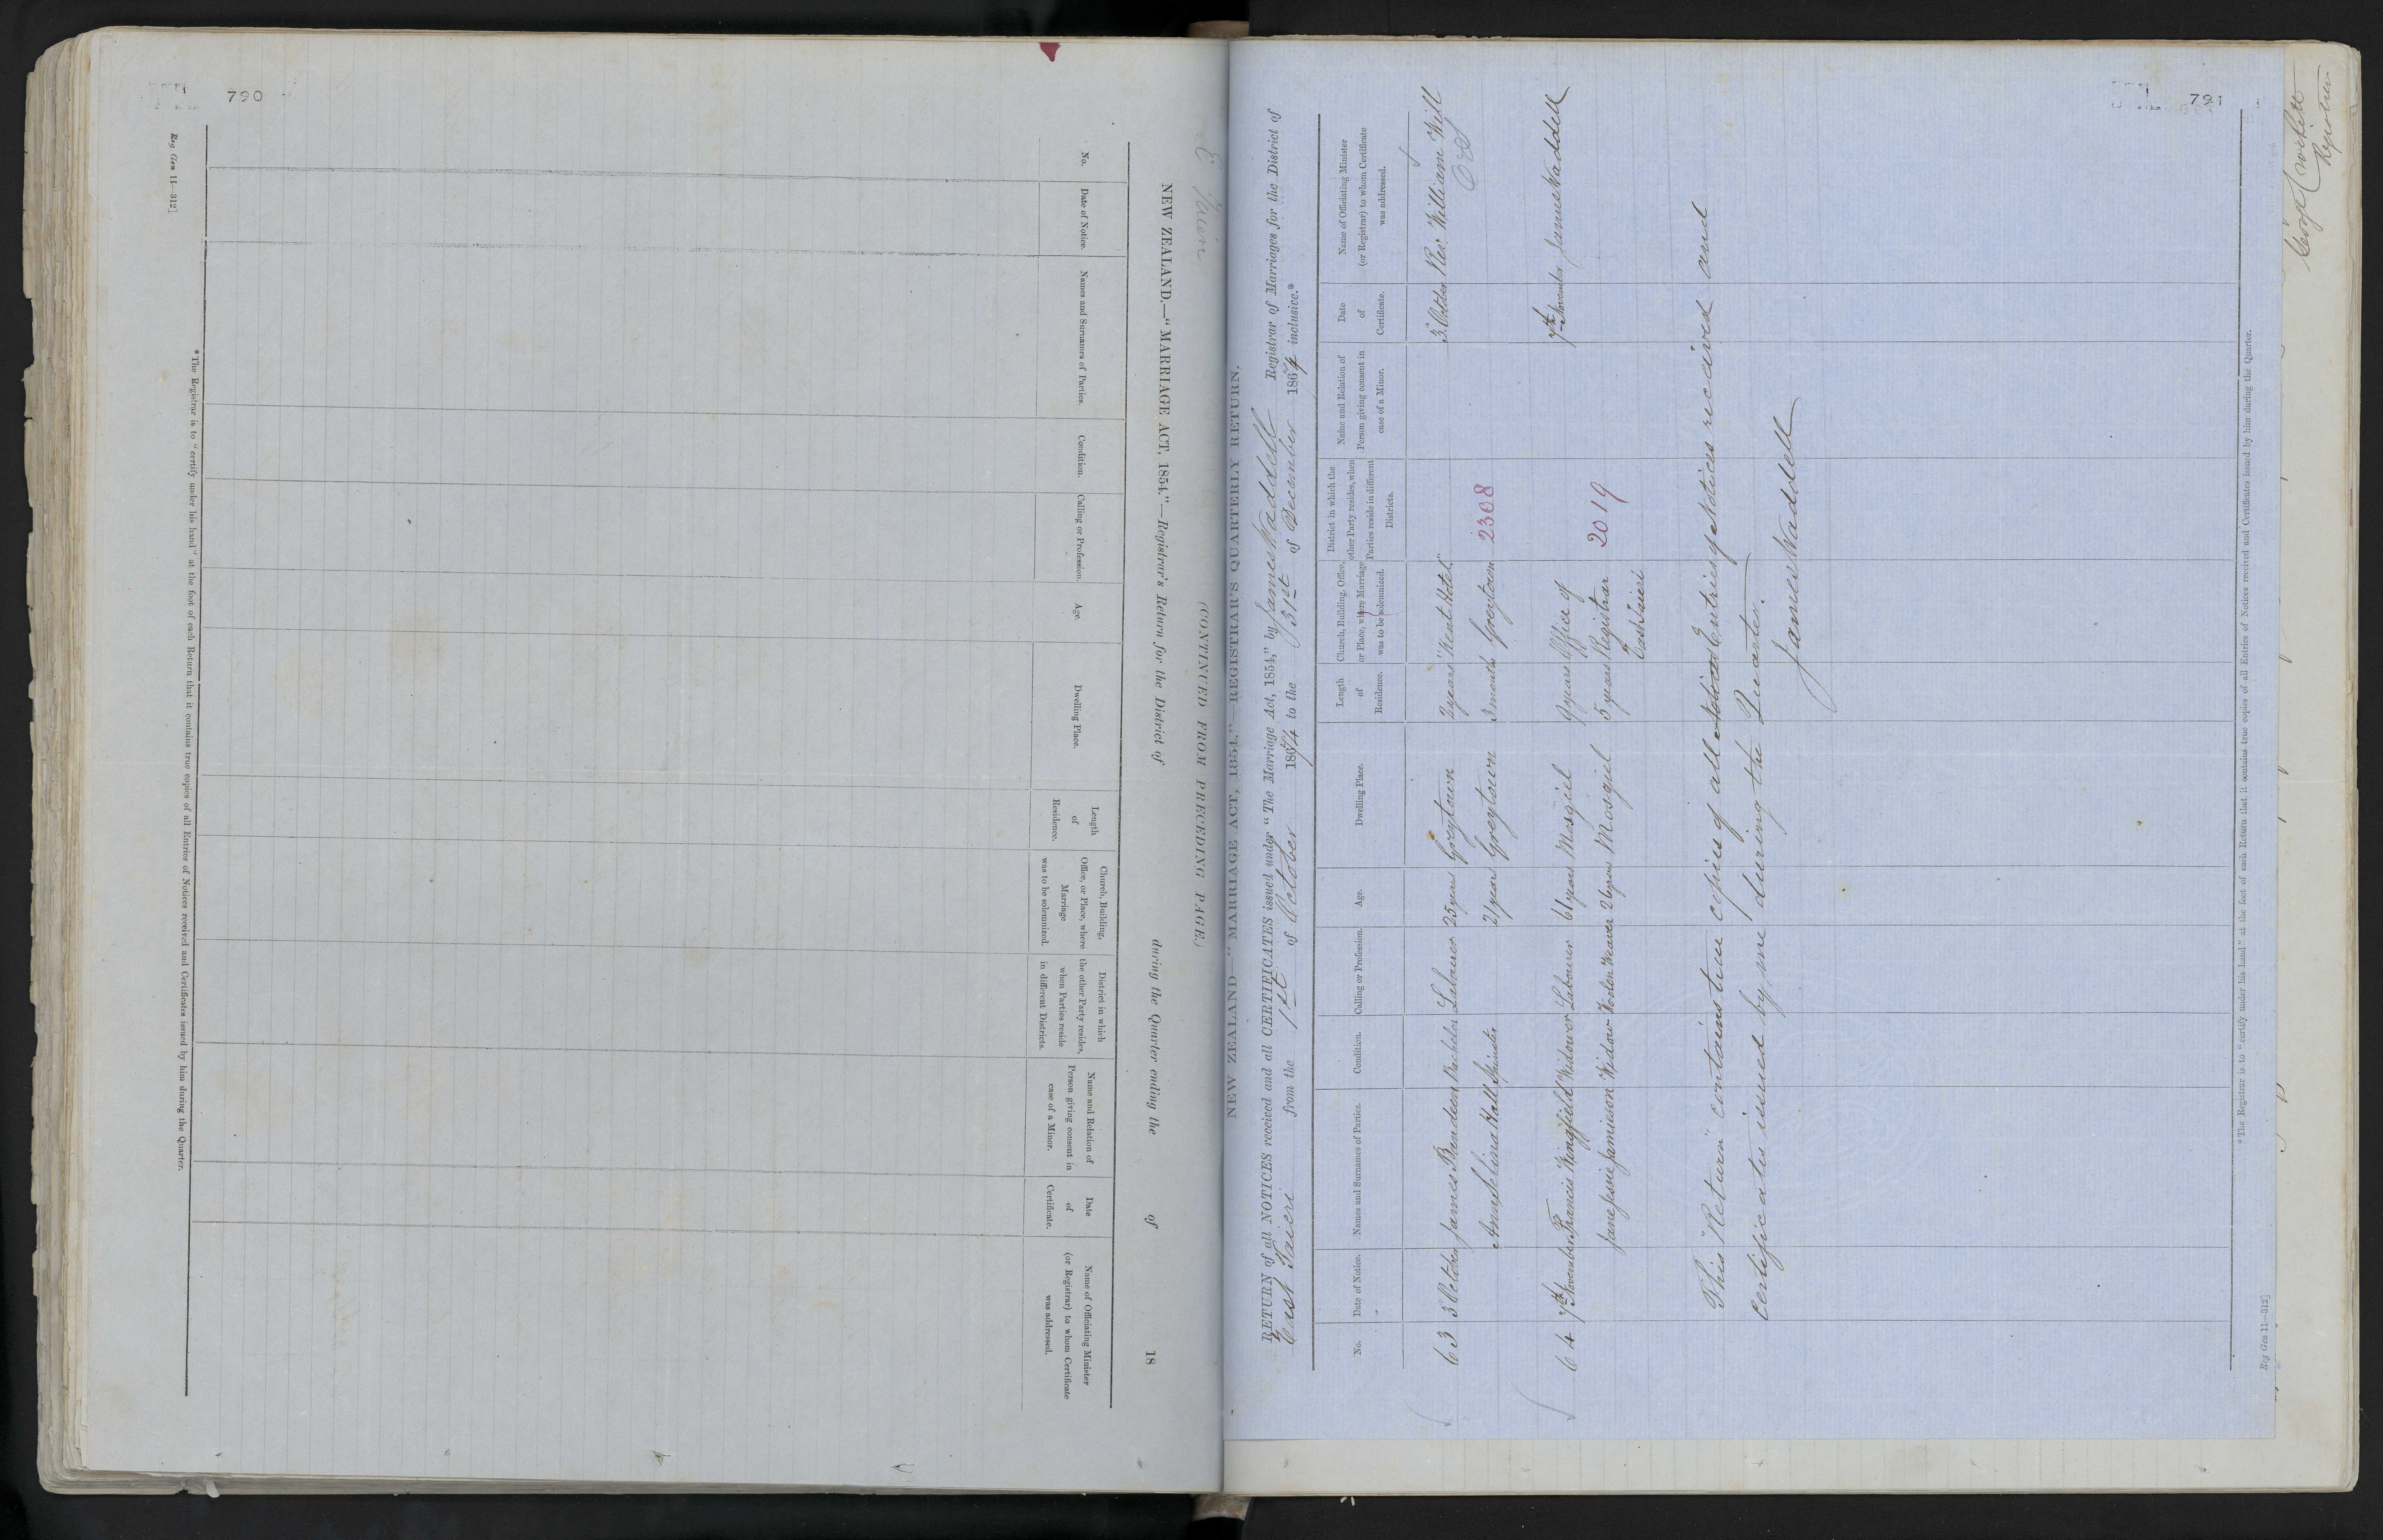 790
E Taieri
(CONTINUED FROM PRECEDING PAGE.)
NEW ZEALAND.—"MARRIAGE ACT, 1854."—Registrar's Return for the District of during the Quarter ending the of 18
No.
Date of Notice.
Names and Surnames of Parties.
Condition.
Calling or Profession.
Age.
Dwelling Place.
Length
of
Residence.
Church, Building,
Office, or Place, where
Marriage
was to be solemnized.
District in which
the other Party resides,
when Parties reside
in different Districts.
Name and Relation of
Person giving consent in
case of a Minor.
Date
of
Certificate.
Name of Officiating Minister
(or Registrar) to whom Certificate
was addressed.
* The Registrar is to "certify under his hand" at the foot of each Return that it contains true copies of all Entries of Notices received and Certificates issued by him during the Quarter.
Reg Gen 11—312]
791
NEW ZEALAND—"MARRIAGE ACT, 1854." REGISTRAR'S QUARTERLY RETURN.
RETURN of all NOTICES received and all CERTIFICATES issued under "The Marriage Act, 1854," by James Waddell Registrar of Marriages for the District of
East Taieri from the 1st of October 1874 to the 31st of December 1874 inclusive.*
No.
Date of Notice.
Names and Surnames of Parties.
Condition.
Calling or Profession.
Age.
Dwelling Place.
Length
of
Residence.
Church, Building, Office,
or Place, where Marriage
was to be solemnized.
District in which the
other Party resides, when
Parties reside in different
Districts.
Name and Relation of
Person giving consent in
case of a Minor.
Date
of
Certificate.
Name of Officiating Minister
(or Registrar) to whom Certificate
was addressed.
63 5 October James Bandeen Bachelor Labourer 25 years Greytown 2 years "Kent Hotel" 5 October Rev. William Will
Ann Selina Hall Spinster 21 years Greytown 3 months Greytown 2308
64 7th November Francis Wingfield Widower Labourer 61 years Mosgiel 9 years Office of 7th November James Waddell
Jane Jessie Jamieson Widow Woolen Weaver 26 years Mosgiel 5 years Registrar 2019
East Taieri
This "Return" contains true copies of all Notices Entries of Notices received and
certificates issued by me during the Quarter.
James Waddell
* The Registrar is to "certify under his hand" at the foot of each Return that it contains true copies of all Entries of Notices received and Certificates issued by him during the Quarter.
Reg Gen 11—312]
Registrar